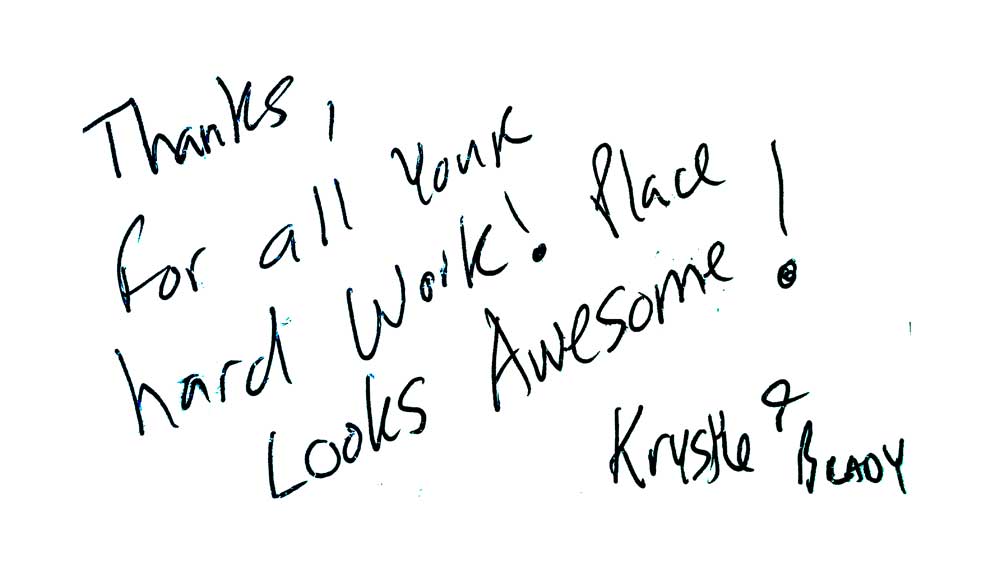 Thanks,
for all your
hard work! Place
Looks Awesome!
Krystle & Brady